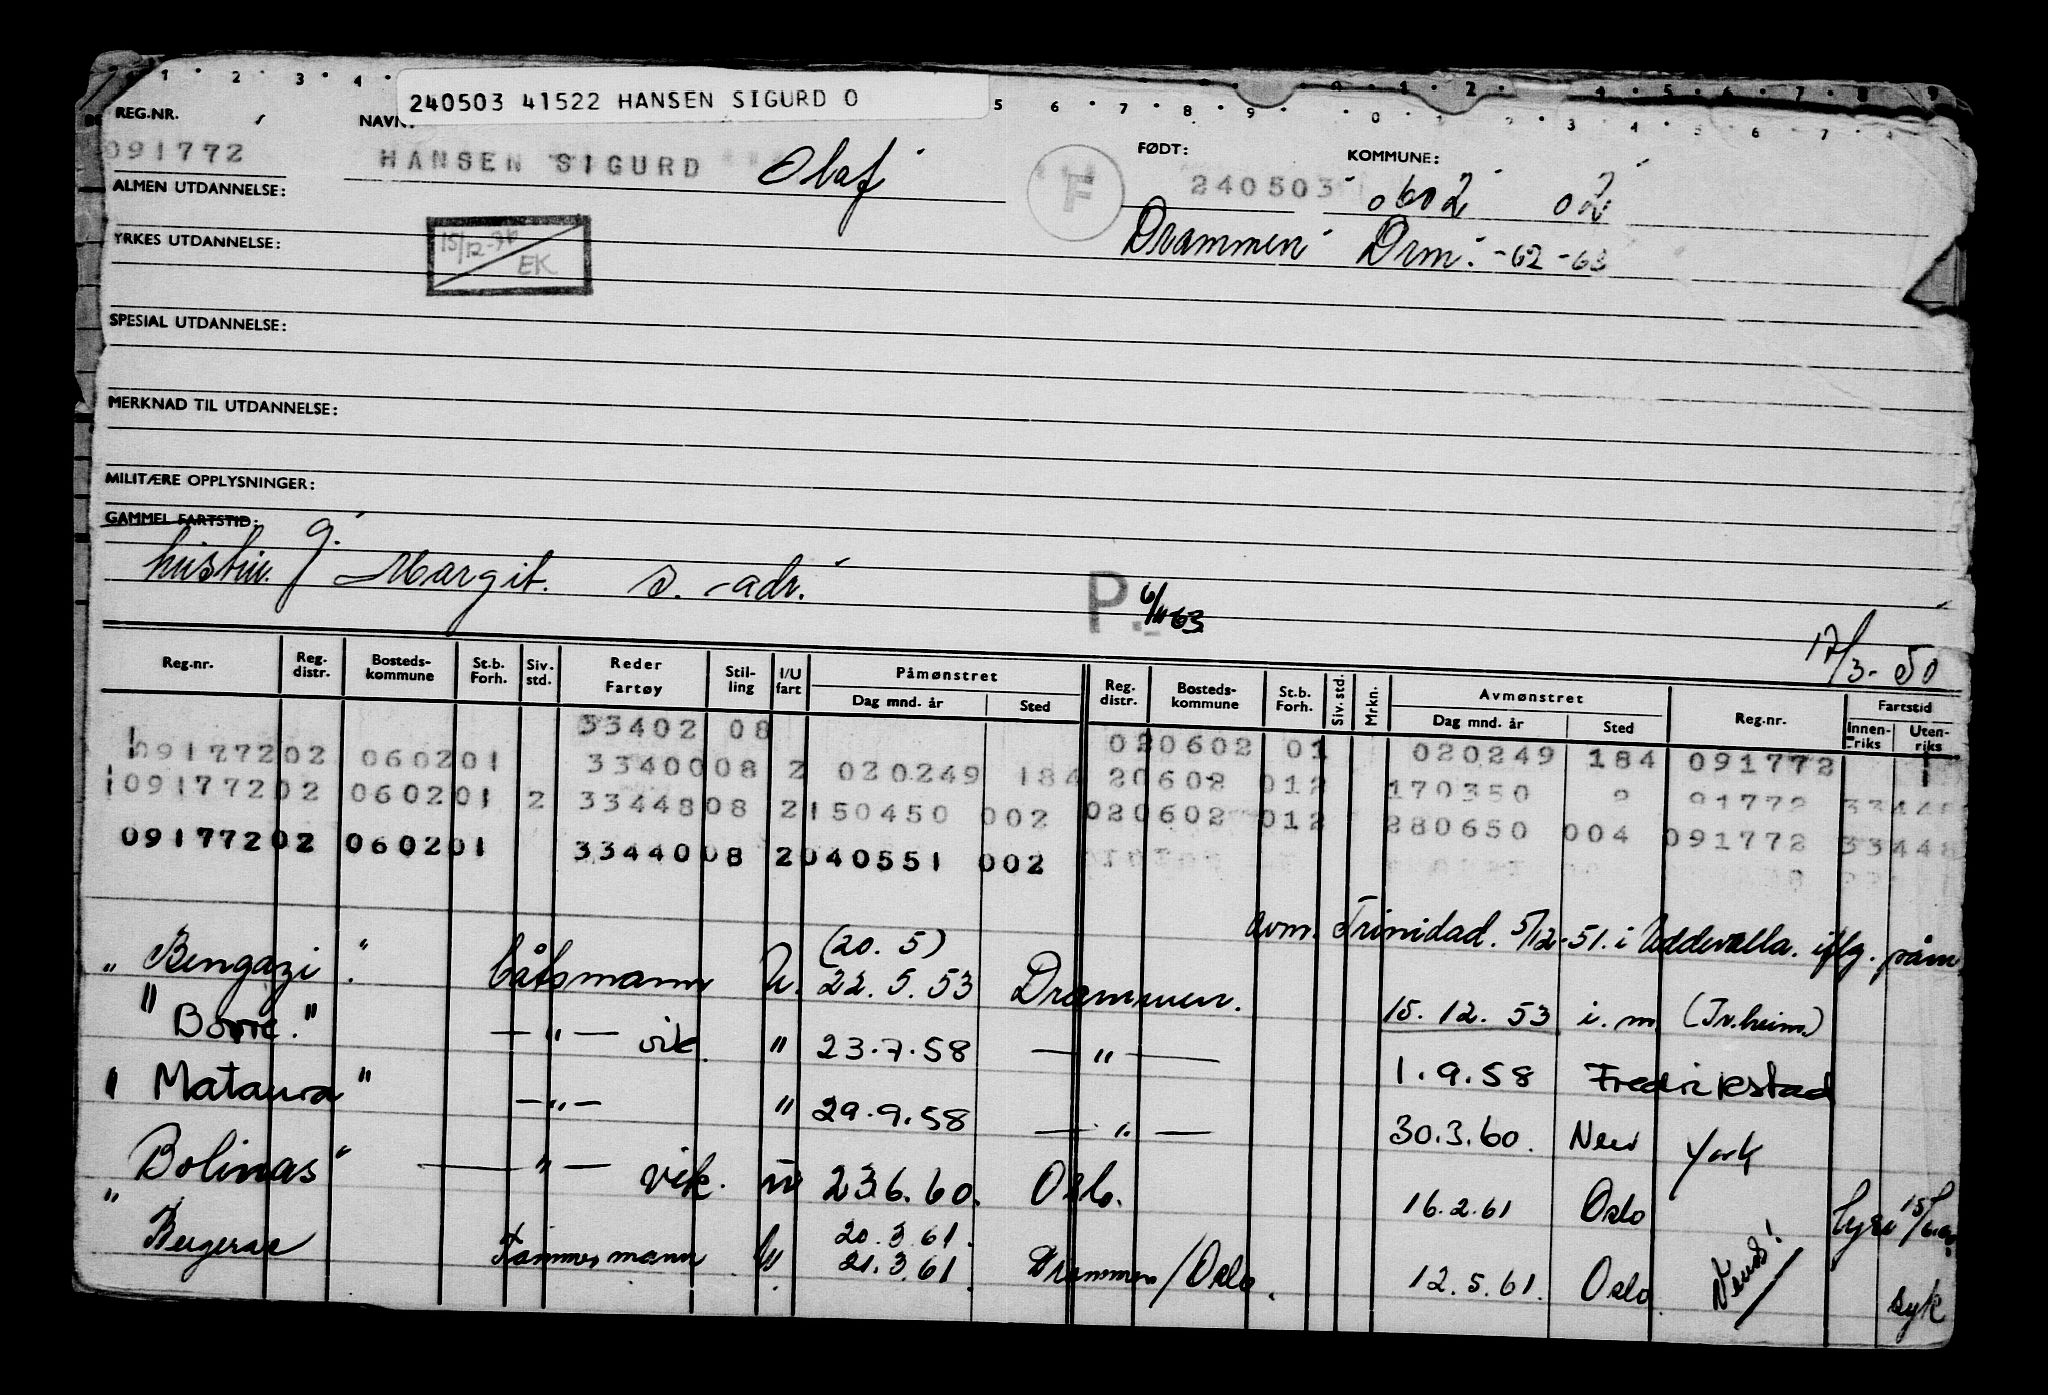 240503 41522 HANSEN SIGURD O
REG.NR. NAVN: FØDT: KOMMUNE:
091772 HANSEN SIGURD Olaf F 240503 0602 02
ALMEN UTDANNELSE:
Drammen Drm. -62 -63
YRKES UTDANNELSE:
EK
SPESIAL UTDANNELSE:
MERKNAD TIL UTDANNELSE:
MILITÆRE OPPLYSNINGER:
GAMMEL FARTSTID:
g. hustru Margit. s. adr.
P. 6/11 63
17/3-50
Reg.nr. Reg. distr. Bosteds-kommune St.b. Forh. Siv. std. Reder Fartøy Stil-ling I/U fart Påmønstret Dag mnd. år Sted Reg. distr. Bosteds-kommune St.b. Forh. Siv. std. Mrkn. Avmønstret Dag mnd. år Sted Reg.nr. Fartstid Innen-riks Uten-riks
33402 08 020602 01 020249 184 091772
091772 02 0602 01 33400 08 2 020249 184 20602 012 170350 91772
091772 02 0602 01 2 33448 08 2 150450 002 020602 012 280650 004 091772 33448
091772 02 0602 01 33440 08 2 040551 002
avm. Trinidad. 5/12-51. i Uddevalla. iflg.
(20. 5)
" Bengazi " båtsmann U. 22. 5. 53 Drammen. 15. 12. 53 i. m (Tr.heim)
" Borre." — " — vik. " 23.7.58 — " — 1.9.58 Fredrikstad
" Mataura " — " — " 29.9.58 — " — 30.3.60. New York
Bolinas" — " — vik. 23.6.60. Oslo. 16.2.61 Oslo
20.3.61.
" Bergerac Tømmermann U 21.3.61. Drammen/Oslo. 12.5.61. Oslo. syk